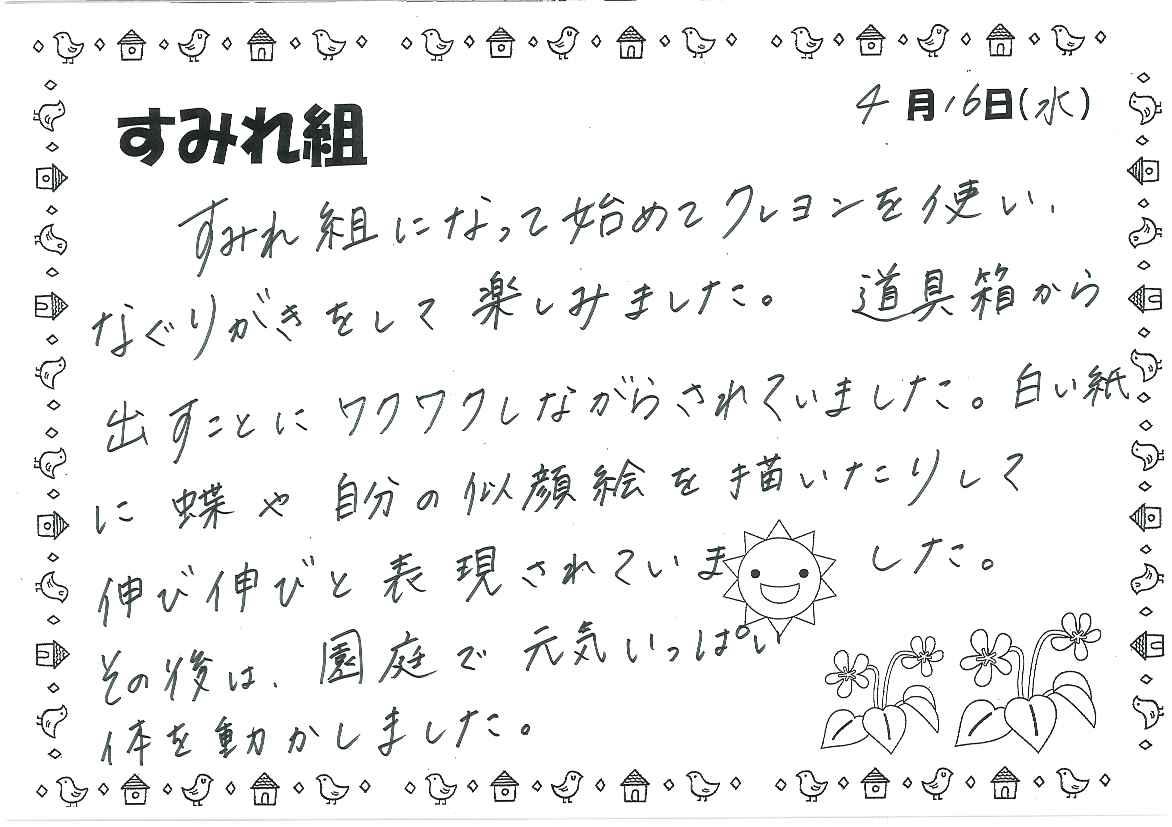 すみれ組
4月16日(水)
すみれ組になって始めてクレヨンを使い、
なぐりがきをして楽しみました。 道具箱から
出すことにワクワクしながらされていました。白い紙
に蝶や自分の似顔絵を描いたりして
伸び伸びと表現されていました。
その後は、園庭で元気いっぱい
体を動かしました。